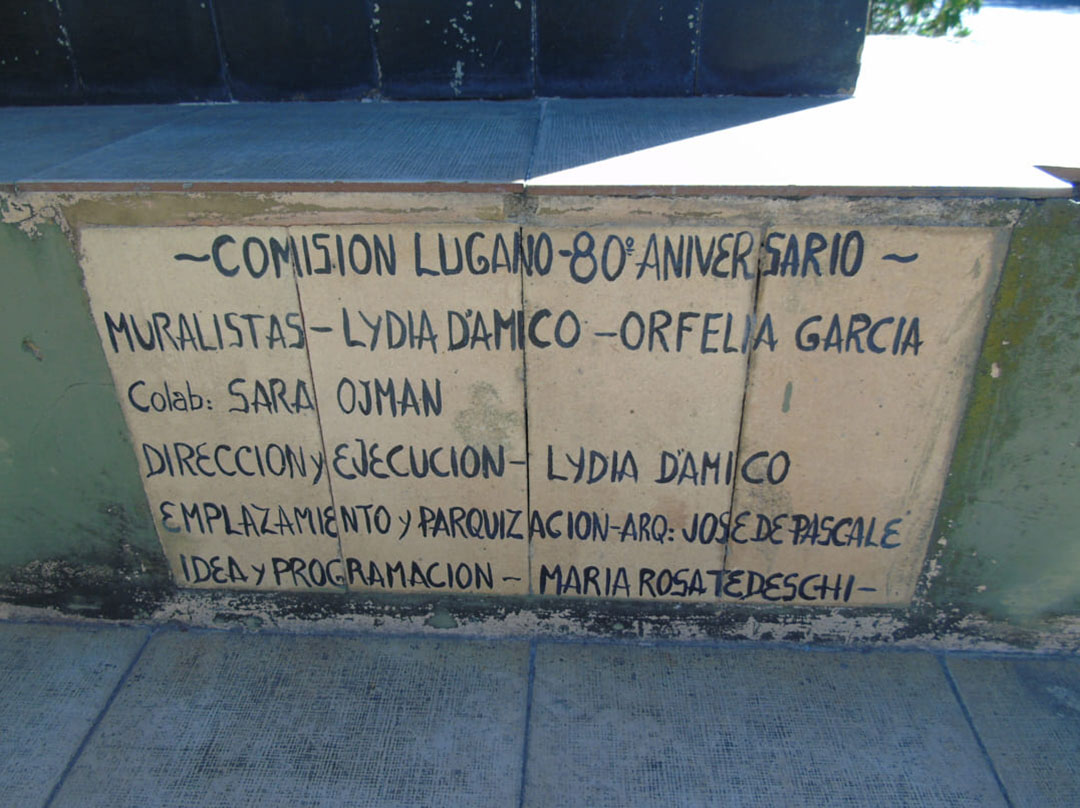 ~COMISION LUGANO-80º ANIVERSARIO~
MURALISTAS-LYDIA D'AMICO-ORFELIA GARCIA
Colab: SARA OJMAN
DIRECCION y EJECUCION- LYDIA D'AMICO
EMPLAZAMIENTO y PARQUIZACION-ARQ: JOSE DE PASCALE
IDEA y PROGRAMACION- MARIA ROSA TEDESCHI-